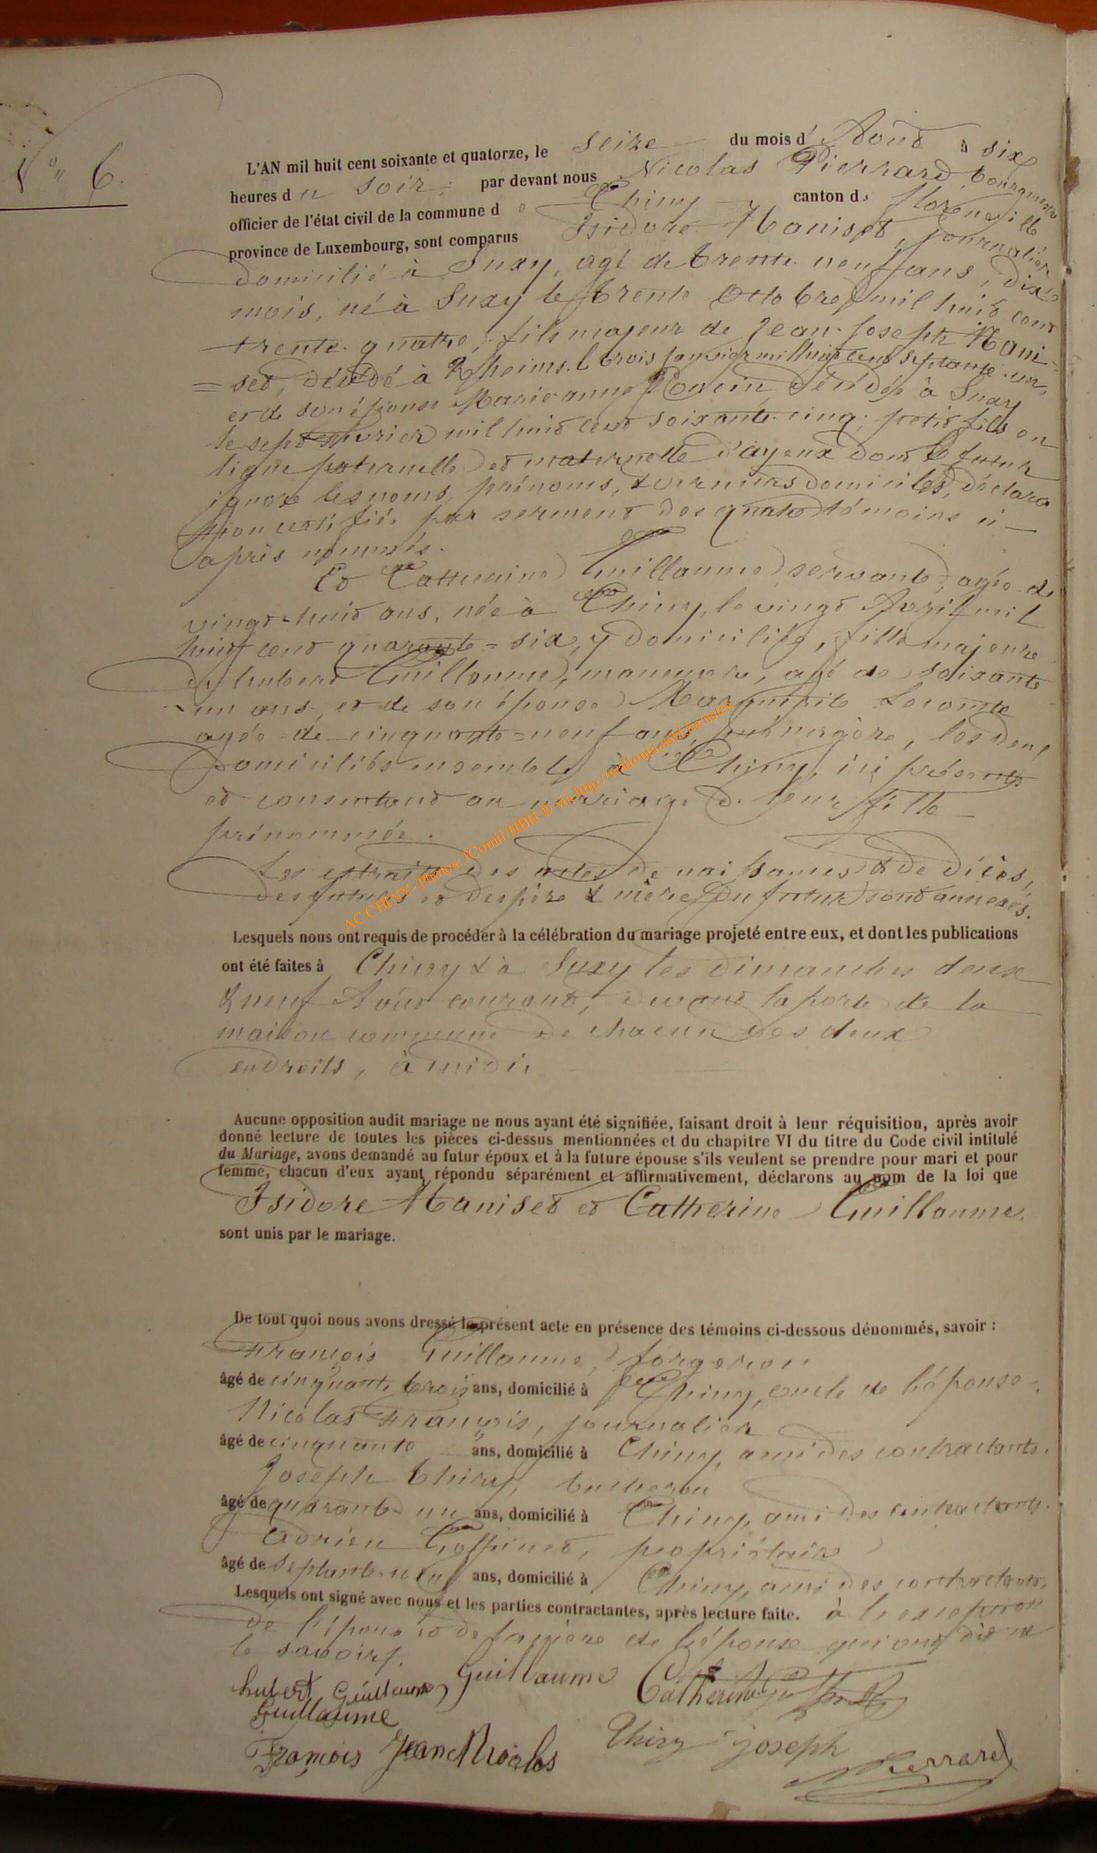 N° 6.
L'AN mil huit cent soixante et quatorze, le seize du mois d' Août à six
heures d u soir; par devant nous Nicolas Pierrard, bourgmestre
officier de l'état civil de la commune d e Chiny canton de Florenville
province de Luxembourg, sont comparus Isidore Maniset, journalier
domicilié à Suxy, agé de trente neuf ans, dix
mois, né à Suxy le trente Octobre mil huit cent
trente-quatre, fils majeur de Jean-Joseph Mani-
=set, décédé à Rheims le trois janvier mil huit cent septante-un,
et de son épouse Marie-anne Poncin décédée à Suxy
le sept février mil huit cent soixante-cinq; petit fils en
ligne paternelle et maternelle d'ayeux dont le futur
ignore les noms, prénoms, & derniers domiciles, déclara
tion certifiée par serment des quatre témoins ci-
après nommés.
Et Catherine Guillaume servante, agée de
vingt-huit ans, née à Chiny, le vingt Avril mil
huit cent quarante=six, y domiciliée, fille majeure
de hubert Guillaume, manœuvre, agé de soixante
un ans, et de son épouse Marguerite Lecomte
agée de cinquante=neuf ans, ménagère, les deux
domiciliés ensemble à Chiny, ici présents
et consentant au mariage de leur fille
prénommée.
Les extraits des actes de naissances & de décès,
des futurs et des père & mère du futur sont annexés.
ACCHINY - Photos JComii/HBH @ via http://
Lesquels nous ont requis de procéder à la célébration du mariage projeté entre eux, et dont les publications
ont été faites à Chiny & à Suxy les dimanches deux
& neuf Août courant, devant la porte de la
maison commune de chacun des deux
endroits, à midi.
Aucune opposition audit mariage ne nous ayant été signifiée, faisant droit à leur réquisition, après avoir
donné lecture de toutes les pièces ci-dessus mentionnées et du chapitre VI du titre du Code civil intitulé
du Mariage, avons demandé au futur époux et à la future épouse s'ils veulent se prendre pour mari et pour
femme, chacun d'eux ayant répondu séparément et affirmativement, déclarons au nom de la loi que
Isidore Maniset et Catherine Guillaume
sont unis par le mariage.
De tout quoi nous avons dressé le présent acte en présence des témoins ci-dessous dénommés, savoir :
François Guillaume, forgeron
âgé de cinquante trois ans, domicilié à Chiny, oncle de l'épouse.
Nicolas François, journalier
âgé de cinquante ans, domicilié à Chiny, ami des contractants.
Joseph Thiry, bucheron
âgé de quarante-un ans, domicilié à Chiny, ami des contractants.
Adrien Goffinet, propriétaire
âgé de septante-neuf ans, domicilié à Chiny, ami des contractants.
Lesquels ont signé avec nous et les parties contractantes, après lecture faite. à l'exception
de l'époux et de la mère de l'épouse qui ont dit ne
le savoir.
hubert Guillaume Guillaume Catherine
Guillaume
François Jean Nicolas Thiry joseph
Pierrard